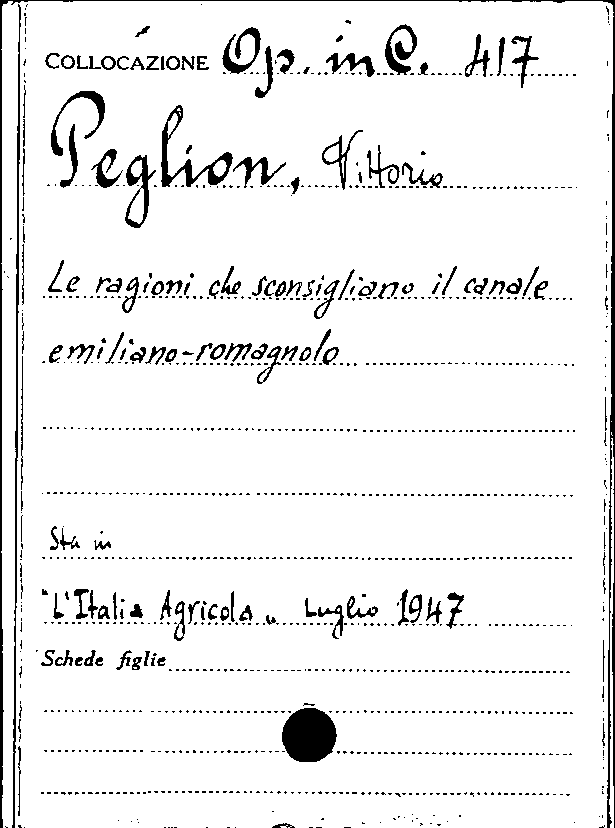 COLLOCAZIONE Op. in C. 417
Peglion, Vittorio
Le ragioni che sconsigliano il canale
emiliano-romagnolo
Sta in
"L'Italia Agricola„ Luglio 1947
Schede figlie